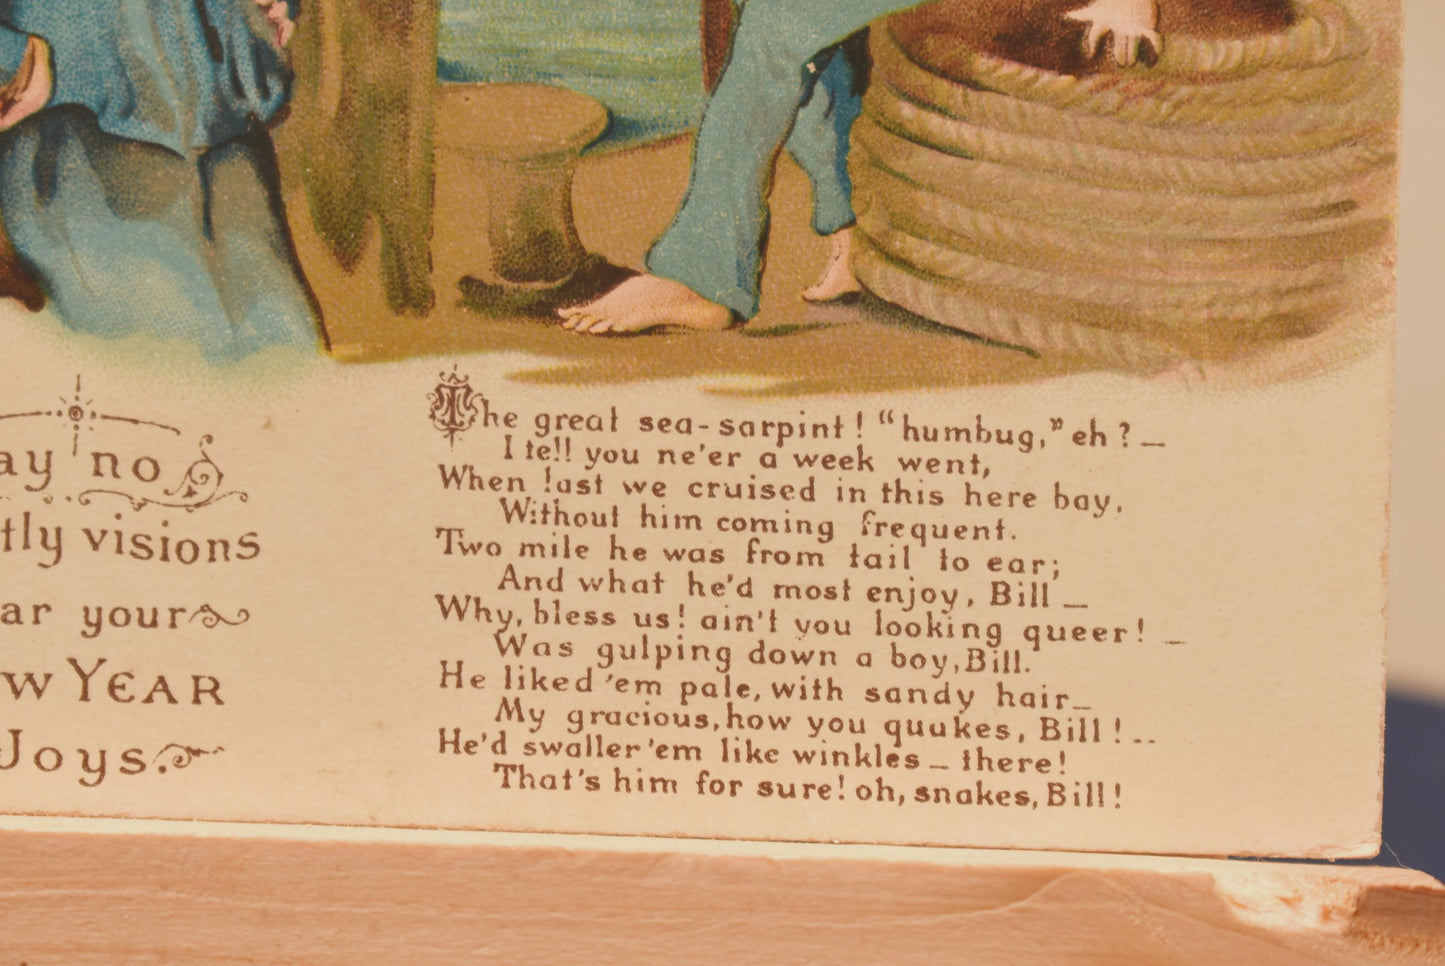 ay no
tly visions
ar your
w YEAR
Joys.
The great sea-sarpint! "humbug," eh? —
I tell you ne'er a week went,
When last we cruised in this here bay,
Without him coming frequent.
Two mile he was from tail to ear;
And what he'd most enjoy, Bill —
Why, bless us! ain't you looking queer! —
Was gulping down a boy, Bill.
He liked 'em pale, with sandy hair —
My gracious, how you quukes, Bill! --
He'd swaller 'em like winkles — there!
That's him for sure! oh, snakes, Bill!